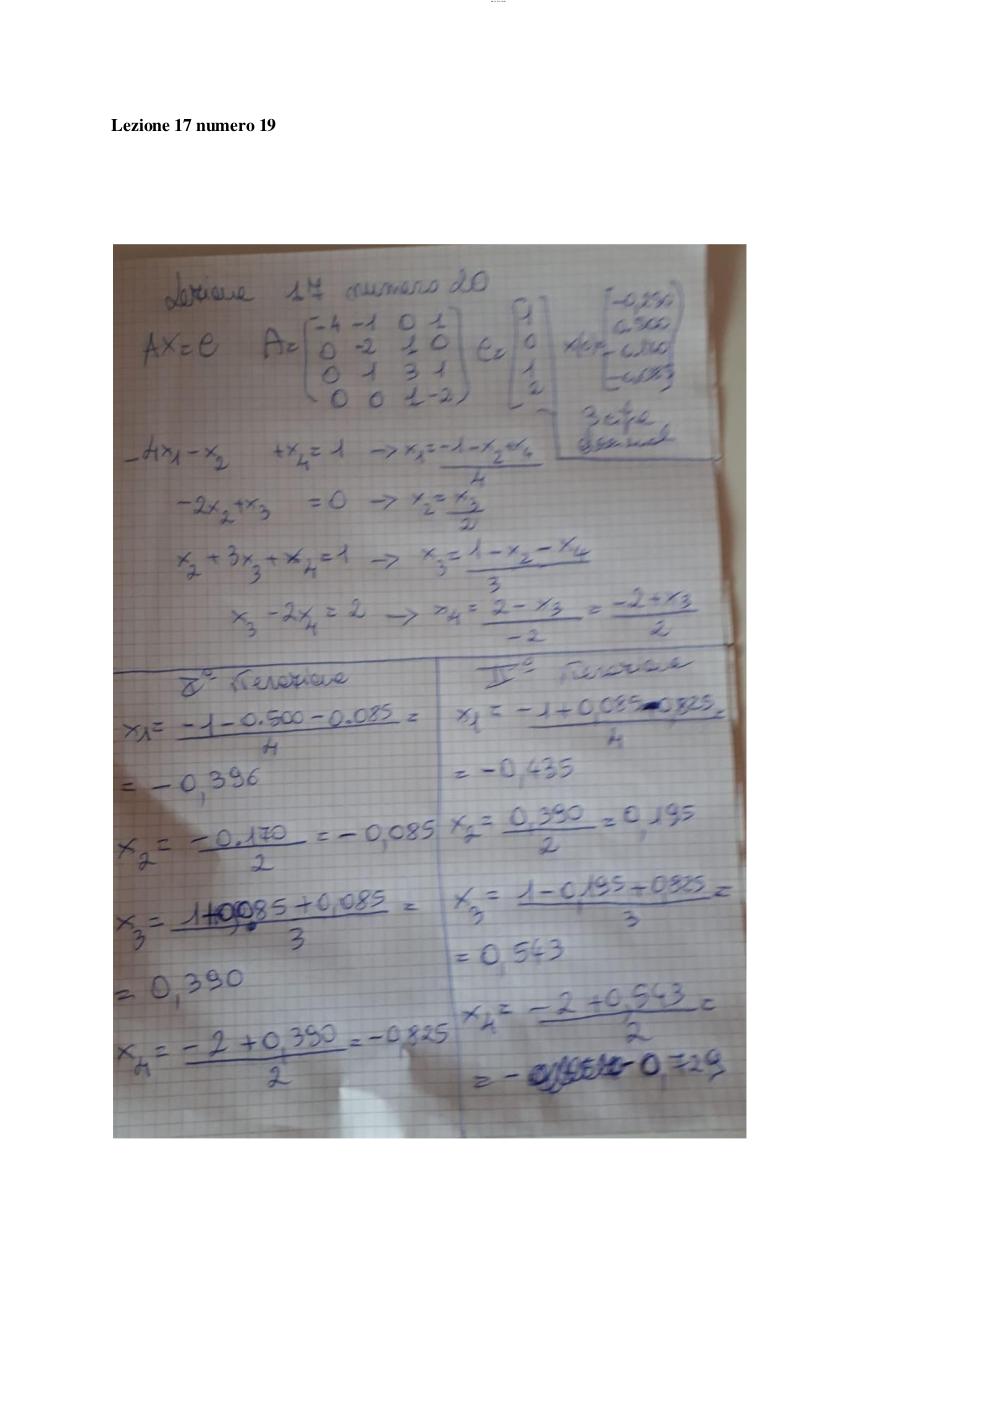 Lezione 17 numero 19
Lezione 17 numero 20
AX=C A= C=
-4 -1 0 1
0 -2 1 0
0 1 3 1
0 0 1 -2
1
0
1
2
0.500
3 cifre
-4x1 - x2 +x4 = 1 → x1 = -1-x2+x4 / 4
-2x2+x3 = 0 → x2 = x3 / 2
x2 + 3x3 + x4 = 1 → x3 = 1-x2-x4 / 3
x3 - 2x4 = 2 → x4 = 2-x3 / -2 = -2+x3 / 2
Iª Iterazione
x1 = -1-0.500-0.085 / 4 =
= -0,396
x2 = -0.170 / 2 = -0,085
x3 = 1+0,085+0,085 / 3 =
= 0,390
x4 = -2+0,390 / 2 = -0,825
IIª Iterazione
x1 = -1+0,085-0,825 / 4 =
= -0,435
x2 = 0,390 / 2 = 0,195
x3 = 1-0,195+0,825 / 3 =
= 0,543
x4 = -2+0,543 / 2 =
= - 0,729